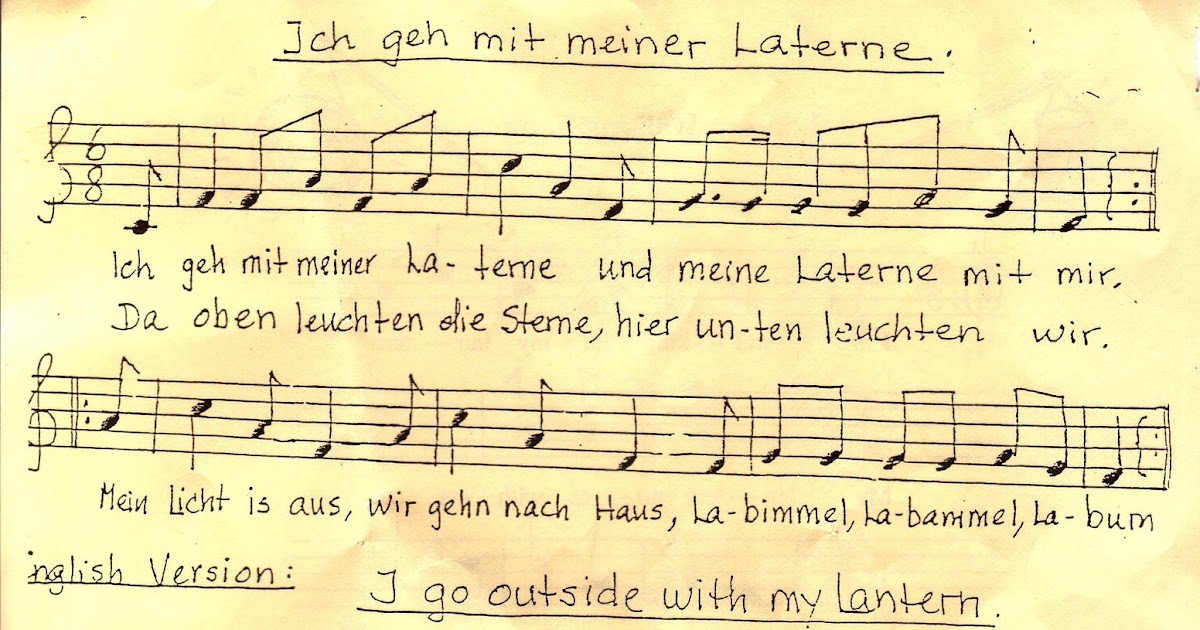 Ich geh mit meiner Laterne.
6
8
Ich geh mit meiner La- terne und meine Laterne mit mir.
Da oben leuchten die Sterne, hier un-ten leuchten wir.
Mein Licht is aus, wir gehn nach Haus, La-bimmel, La-bammel, La-bum
nglish Version:
I go outside with my Lantern.